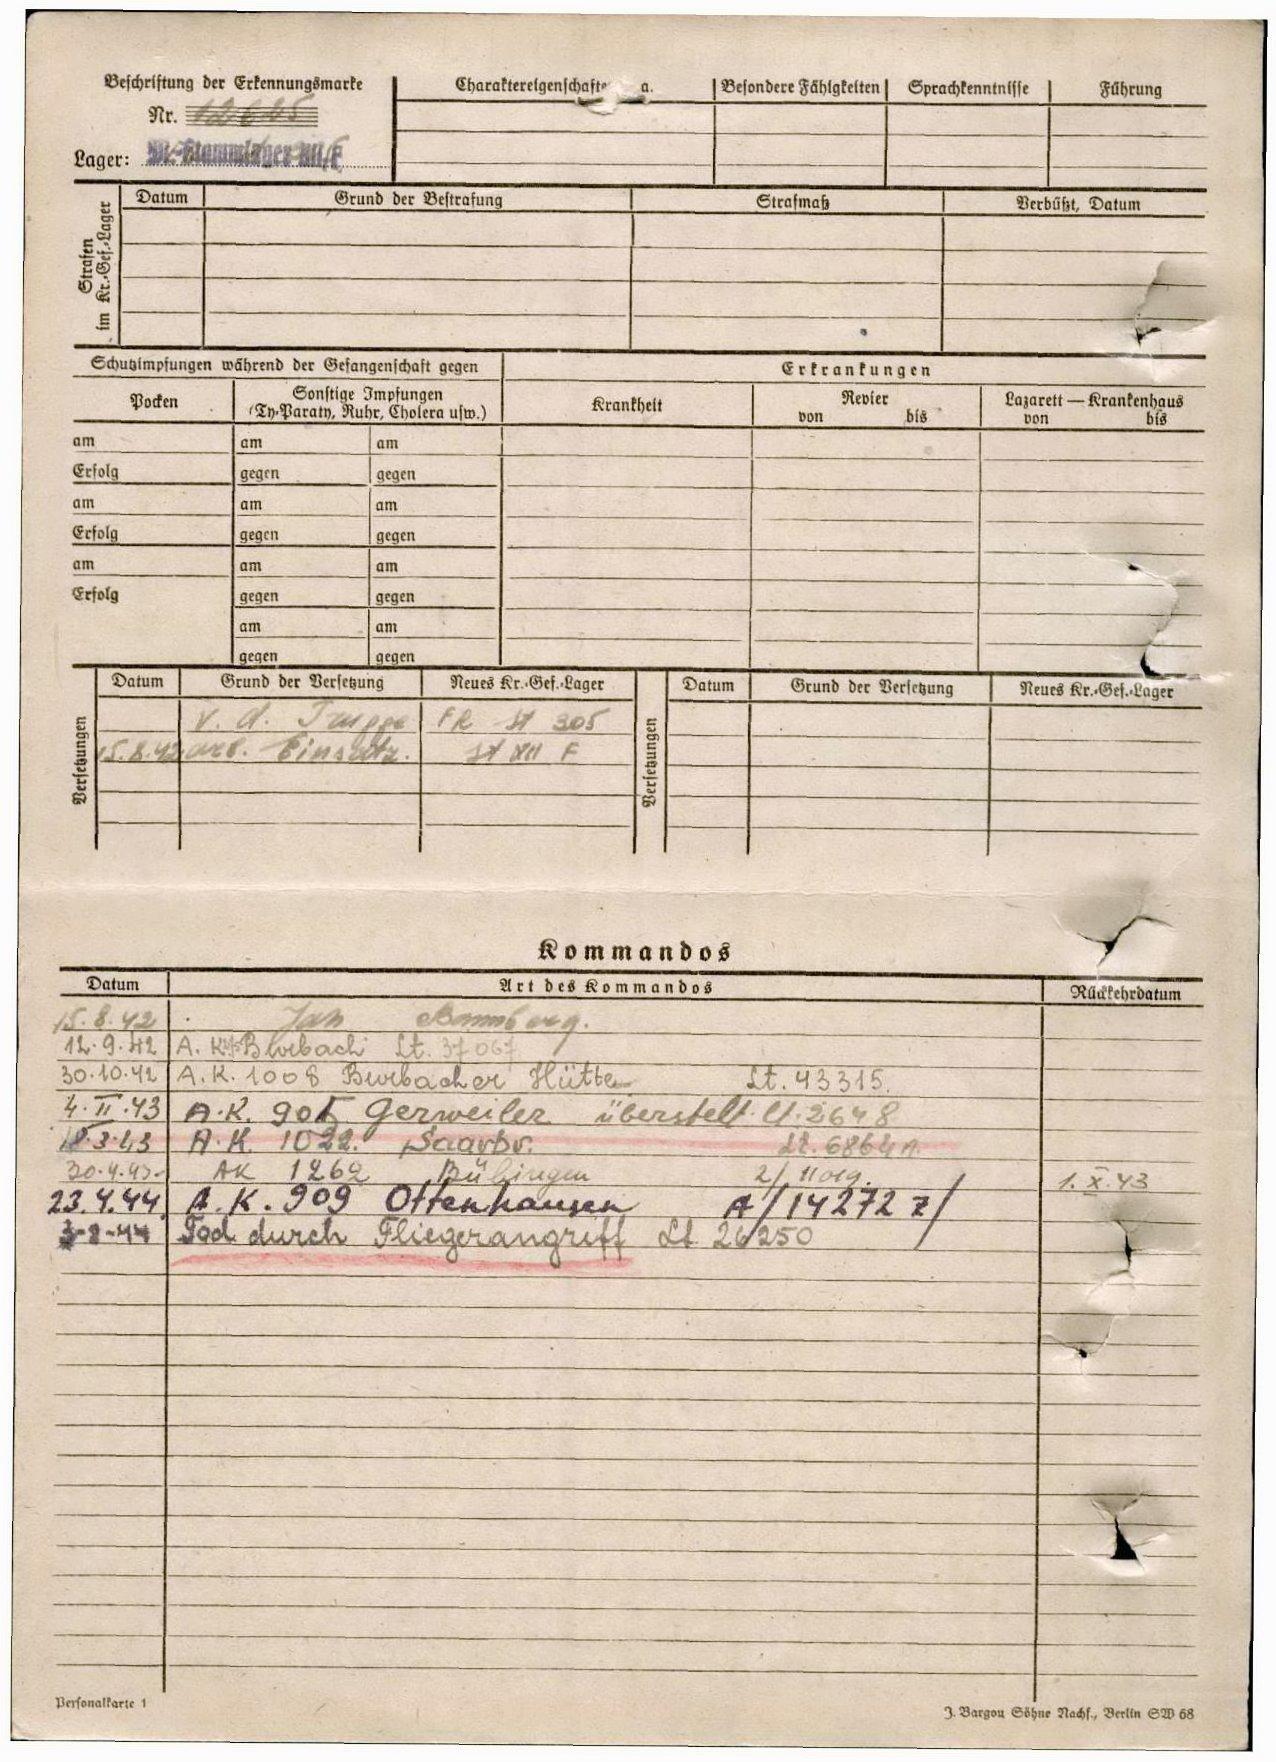 Beschriftung der Erkennungsmarke
Nr. 12625
Lager: M.-Stammlager XII/F
Charaktereigenschaften a.
Besondere Fähigkeiten
Sprachkenntnisse
Führung
Strafen im Kr.-Gef.-Lager
Datum
Grund der Bestrafung
Strafmaß
Verbüßt, Datum
Schutzimpfungen während der Gefangenschaft gegen
Erkrankungen
Pocken
Sonstige Impfungen
(Ty-Paraty, Ruhr, Cholera usw.)
Krankheit
Revier
von bis
Lazarett — Krankenhaus
von bis
am am am
Erfolg gegen gegen
am am am
Erfolg gegen gegen
am am am
Erfolg gegen gegen
am am
gegen gegen
Versetzungen
Datum Grund der Versetzung Neues Kr.-Gef.-Lager
v. d. Truppe FR St 305
15.8.42 arb. Einsatz. St XII F
Versetzungen
Datum Grund der Versetzung Neues Kr.-Gef.-Lager
Kommandos
Datum Art des Kommandos Rückkehrdatum
15.8.42
12.9.42 A. K. Burbach Lt. 37067
30.10.42 A.K. 1008 Burbacher Hütte Lt. 43315.
4.II.43 A.K. 905 Gerweiler überstelt lt. 2648
18.3.43 A.K. 1022. Saarbr. Lt. 6864 A.
30.4.43 AK 1262 Bübingen 2/11019. 1.X.43
23.4.44 A.K. 909 Ottenhausen A/14272 z/
3-8-44 Tod durch Fliegerangriff Lt 26250
Personalkarte 1
J. Bargou Söhne Nachf., Berlin SW 68